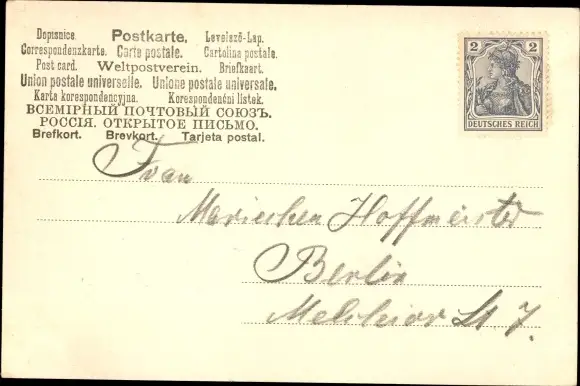 Dopisnice. Postkarte. Levelező-Lap.
Correspondenzkarte. Carte postale. Cartolina postale.
Post card. Weltpostverein. Briefkaart.
Union postale universelle. Unione postale universale.
Karta korespondencyjna. Korespondenčni listek.
ВСЕМІРНЫЙ ПОЧТОВЫЙ СОЮЗЪ.
РОССІЯ. ОТКРЫТОЕ ПИСЬМО.
Brefkort. Brevkort. Tarjeta postal.
2 2
DEUTSCHES REICH
Frau
Mariechen Hoffmeister
Berlin
Melchior St 7.